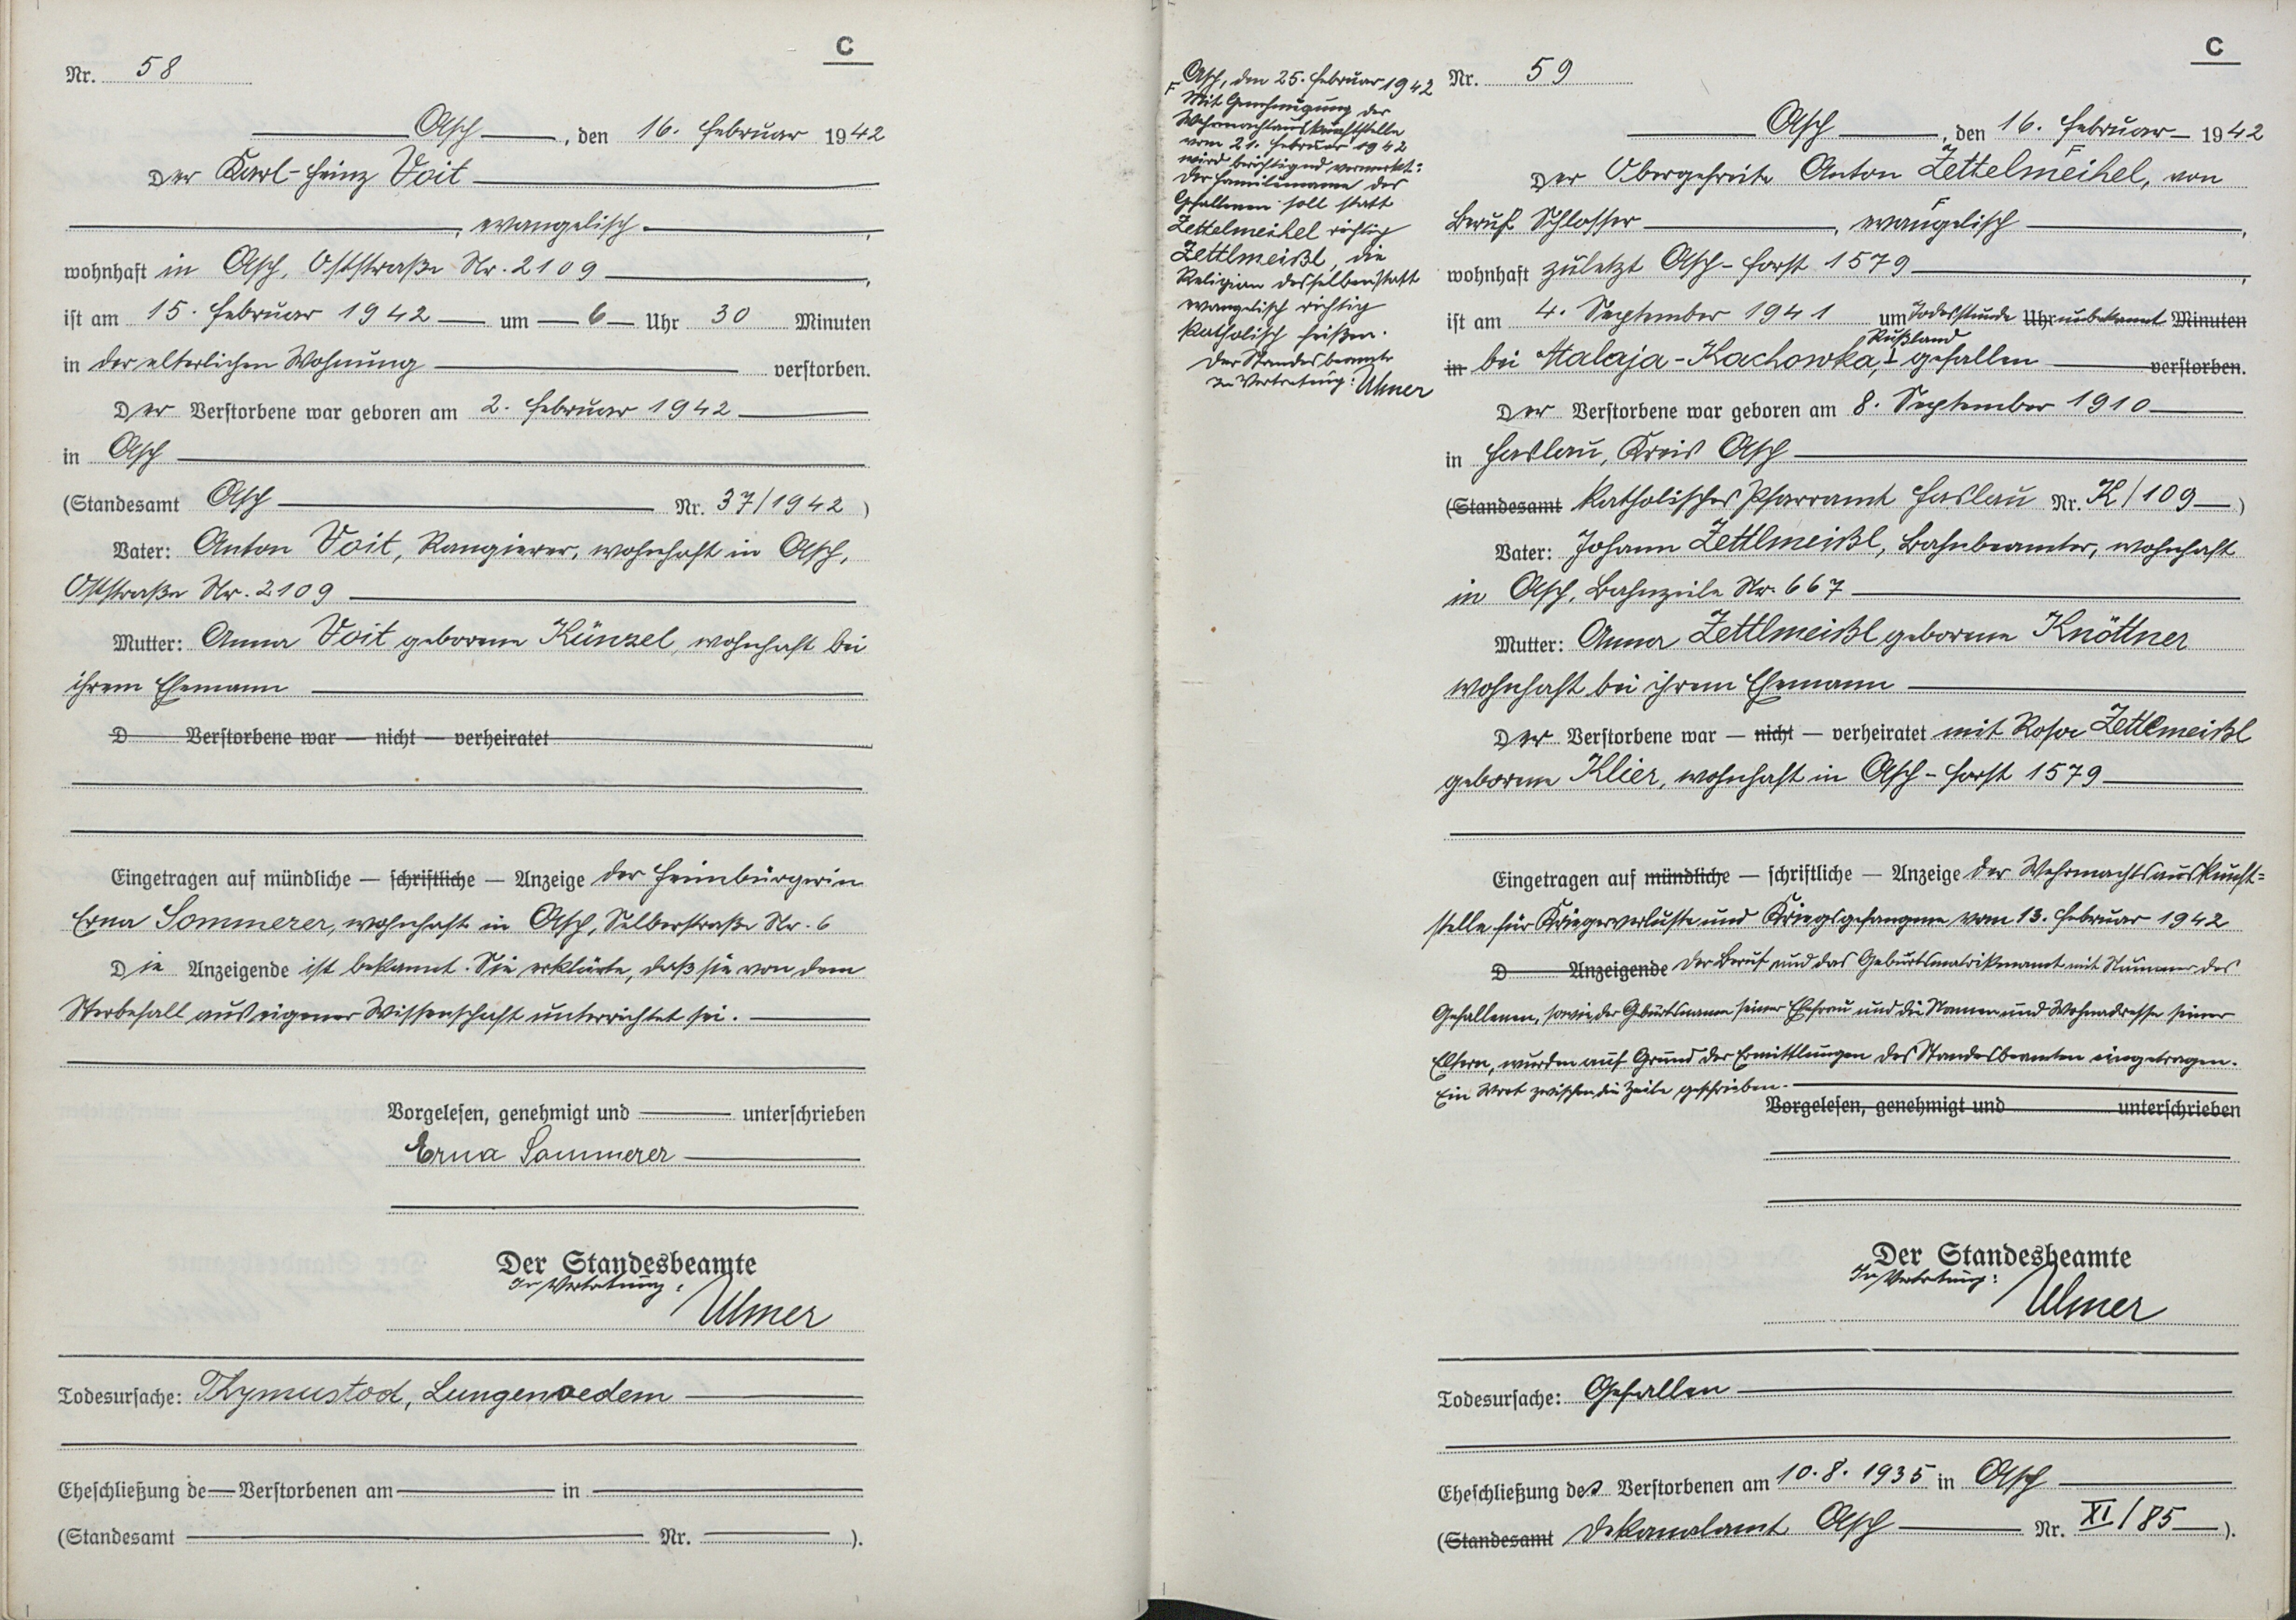 C
Nr. 58
Asch, den 16. Februar 1942
Der Karl-Heinz Voit
, evangelisch,
wohnhaft in Asch, Oststraße Nr. 2109,
ist am 15. Februar 1942 um 6 Uhr 30 Minuten
in der elterlichen Wohnung verstorben.
Der Verstorbene war geboren am 2. Februar 1942
in Asch
(Standesamt Asch Nr. 37/1942)
Vater: Anton Voit, Rangierer, wohnhaft in Asch,
Oststraße Nr. 2109
Mutter: Anna Voit geborene Künzel, wohnhaft bei
ihrem Ehemann
D Verstorbene war — nicht — verheiratet
Eingetragen auf mündliche — schriftliche — Anzeige der Heimbürgerin
Erna Sommerer, wohnhaft in Asch, Selberstraße Nr. 6
Die Anzeigende ist bekannt. Sie erklärte, daß sie von dem
Sterbefall aus eigener Wissenschaft unterrichtet sei.
Vorgelesen, genehmigt und unterschrieben
Erna Sommerer
Der Standesbeamte
In Vertretung:
Ulmer
Todesursache: Thymustod, Lungenoedem
Eheschließung de Verstorbenen am in
(Standesamt Nr. ).
Asch, den 25. Februar 1942
F Mit Genehmigung der
Wehrmachtauskunftstelle
vom 21. Februar 1942
wird berichtigend vermerkt:
Der Familienname des
Gefallenen soll statt
Zettelmeihel richtig
Zettlmeißl, die
Religion desselben statt
evangelisch richtig
katholisch heißen.
Der Standesbeamte
In Vertretung: Ulmer
C
Nr. 59
Asch, den 16. Februar 1942
F
Der Obergefreite Anton Zettelmeihel, von
F
Beruf Schlosser, evangelisch,
wohnhaft zuletzt Asch-Forst 1579,
ist am 4. September 1941 um Todesstunde Uhr unbekannt Minuten
Rußland
in bei Malaja-Kachowka, I gefallen verstorben.
Der Verstorbene war geboren am 8. September 1910
in Haslau, Kreis Asch
(Standesamt Katholisches Pfarramt Haslau Nr. K/109)
Vater: Johann Zettlmeißl, Bahnbeamter, wohnhaft
in Asch, Bahnzeile Nr. 667
Mutter: Anna Zettlmeißl geborene Knöttner
wohnhaft bei ihrem Ehemann
Der Verstorbene war — nicht — verheiratet mit Rosa Zettlmeißl
geborene Klier, wohnhaft in Asch-Forst 1579
Eingetragen auf mündliche — schriftliche — Anzeige der Wehrmachtsauskunft-
stelle für Kriegerverluste und Kriegsgefangene vom 13. Februar 1942
D Anzeigende Der Beruf und das Geburtsmatrikenamt mit Nummer des
Gefallenen, sowie der Geburtsname seiner Ehefrau und die Namen und Wohnadresse seiner
Eltern, wurden auf Grund der Ermittlungen des Standesbeamten eingetragen.
Ein Wort zwischen die Zeile geschrieben.
Vorgelesen, genehmigt und unterschrieben
Der Standesbeamte
In Vertretung:
Ulmer
Todesursache: Gefallen
Eheschließung des Verstorbenen am 10.8.1935 in Asch
(Standesamt Dekanalamt Asch Nr. XI/85).